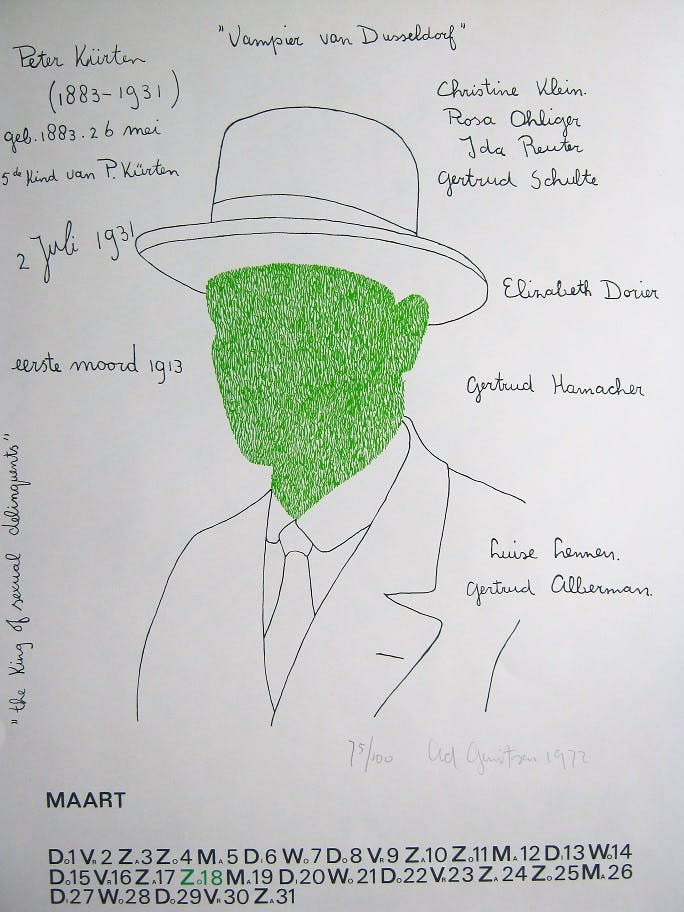 "Vampier van Dusseldorf"
Peter Kürten
(1883-1931)
geb. 1883. 26 mei
5de Kind van P. Kürten
2 Juli 1931
eerste moord 1913
"the King of sexual delinquents"
Christine Klein.
Rosa Ohliger
Ida Reuter
Gertrud Schulte
Elizabeth Dorier
Gertrud Hamacher
Luise Lennen.
Gertrud Alberman.
75/100 Ad Gerritsen 1972
MAART
Do1 VR2 ZA3 Zo4 MA5 DI6 Wo7 Do8 VR9 ZA10 Zo11 MA12 DI13 Wo14
Do15 VR16 ZA17 Zo18 MA19 DI20 Wo21 Do22 VR23 ZA24 Zo25 MA26
DI27 Wo28 Do29 VR30 ZA31